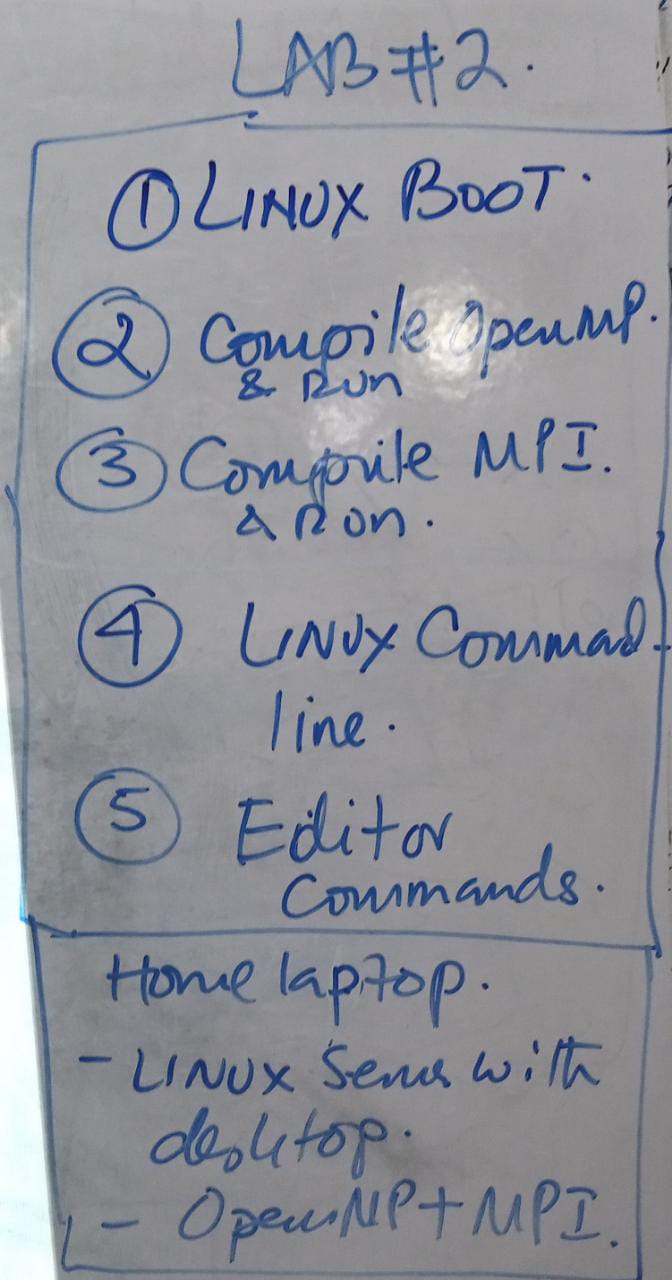 LAB #2.
① LINUX BOOT.
② Compile OpenMP.
& RUN
③ Compile MPI.
& RUN.
④ LINUX Command
line.
⑤ Editor
Commands.
Home laptop.
- LINUX Server with
desktop.
- OpenMP + MPI.